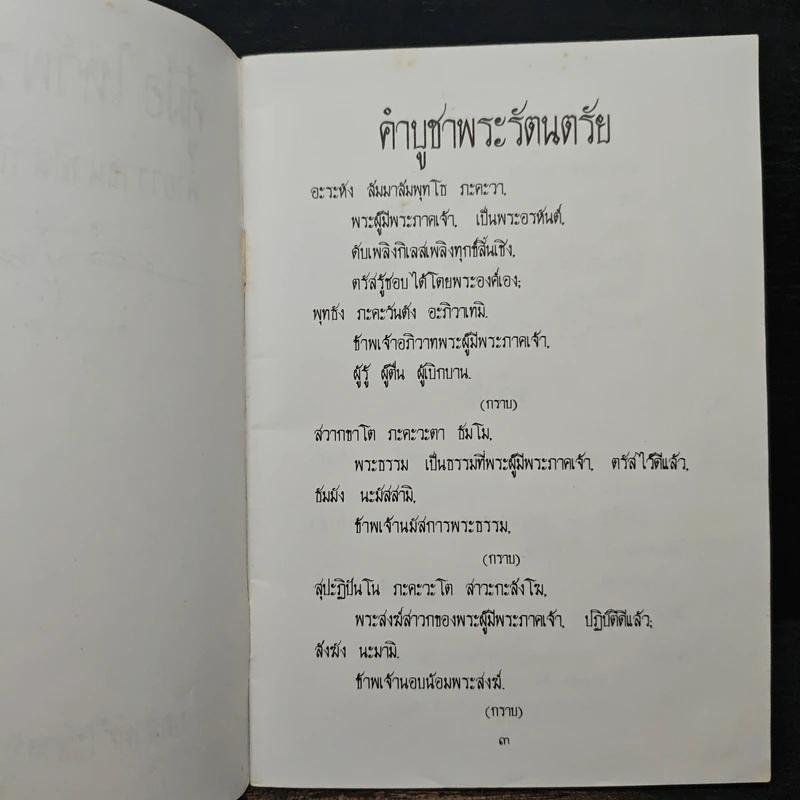 คำบูชาพระรัตนตรัย
อะระหัง สัมมาสัมพุทโธ ภะคะวา,
พระผู้มีพระภาคเจ้า, เป็นพระอรหันต์,
ดับเพลิงกิเลสเพลิงทุกข์สิ้นเชิง,
ตรัสรู้ชอบได้โดยพระองค์เอง;
พุทธัง ภะคะวันตัง อะภิวาเทมิ.
ข้าพเจ้าอภิวาทพระผู้มีพระภาคเจ้า,
ผู้รู้ ผู้ตื่น ผู้เบิกบาน.
(กราบ)
สวากขาโต ภะคะวะตา ธัมโม,
พระธรรม เป็นธรรมที่พระผู้มีพระภาคเจ้า, ตรัสไว้ดีแล้ว,
ธัมมัง นะมัสสามิ,
ข้าพเจ้านมัสการพระธรรม,
(กราบ)
สุปะฏิปันโน ภะคะวะโต สาวะกะสังโฆ,
พระสงฆ์สาวกของพระผู้มีพระภาคเจ้า, ปฏิบัติดีแล้ว;
สังฆัง นะมามิ.
ข้าพเจ้านอบน้อมพระสงฆ์.
(กราบ)
๓